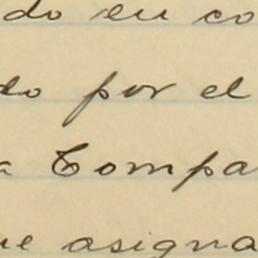 do en co
do por el
a Compa
ue asigna